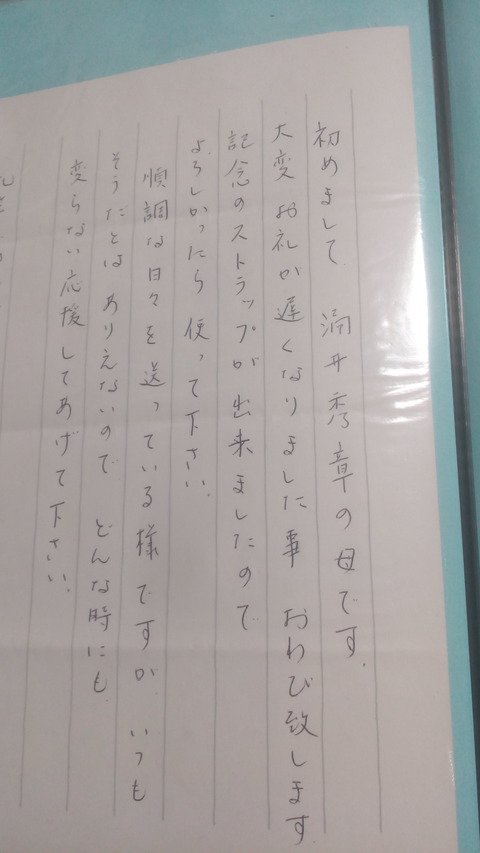 初めまして 洞井秀章の母です.
大変お礼が遅くなりました事 おわび致します
記念のストラップが出来ましたので
よろしかったら使って下さい.
順調な日々を送っている様ですが いつも
そうだとは ありえないので どんな時にも
変らない応援してあげて下さい.